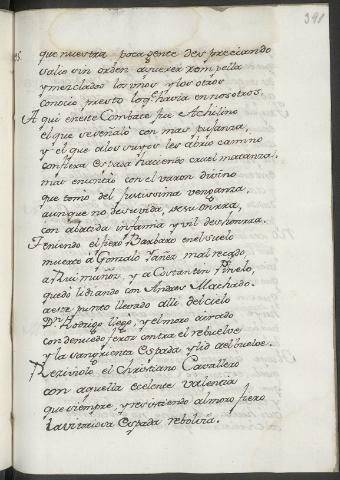 391
que nuestra poca gente despreciando
salio sin orden a querer rompella
y mezclados los unos y los otros
conocio presto lo q̃ havia en nosotros.
A qui en este Combate fue Achilino
el que se venzió con mas pujanza,
y el que a los suyos les abrio camino
con fiera espada haciendo cruel matanza:
mas encontró con el varon divino
que tomó del justissima venganza,
aunque no de su vida, de su onrra,
con abatida infamia y vil deshonrra.
Teniendo el fiero Barbaro en el suelo
muerto a Gonzalo Yañez mal recado,
a Rui muñoz, y a Costantin Pinelo,
quedó lidiando con Andres Machado.
a este punto llevado alli del cielo
Dn Rodrigo llegó, y el moro airado
con denuedo feroz contra el rebuelve
y la sangrienta espada y lid a el buelve.
Rezivíolo el christiano Cavallero
con aquella ecelente valencia
que siempre, y resistiendo al moro fiero
la vitoriosa espada rebolvia.